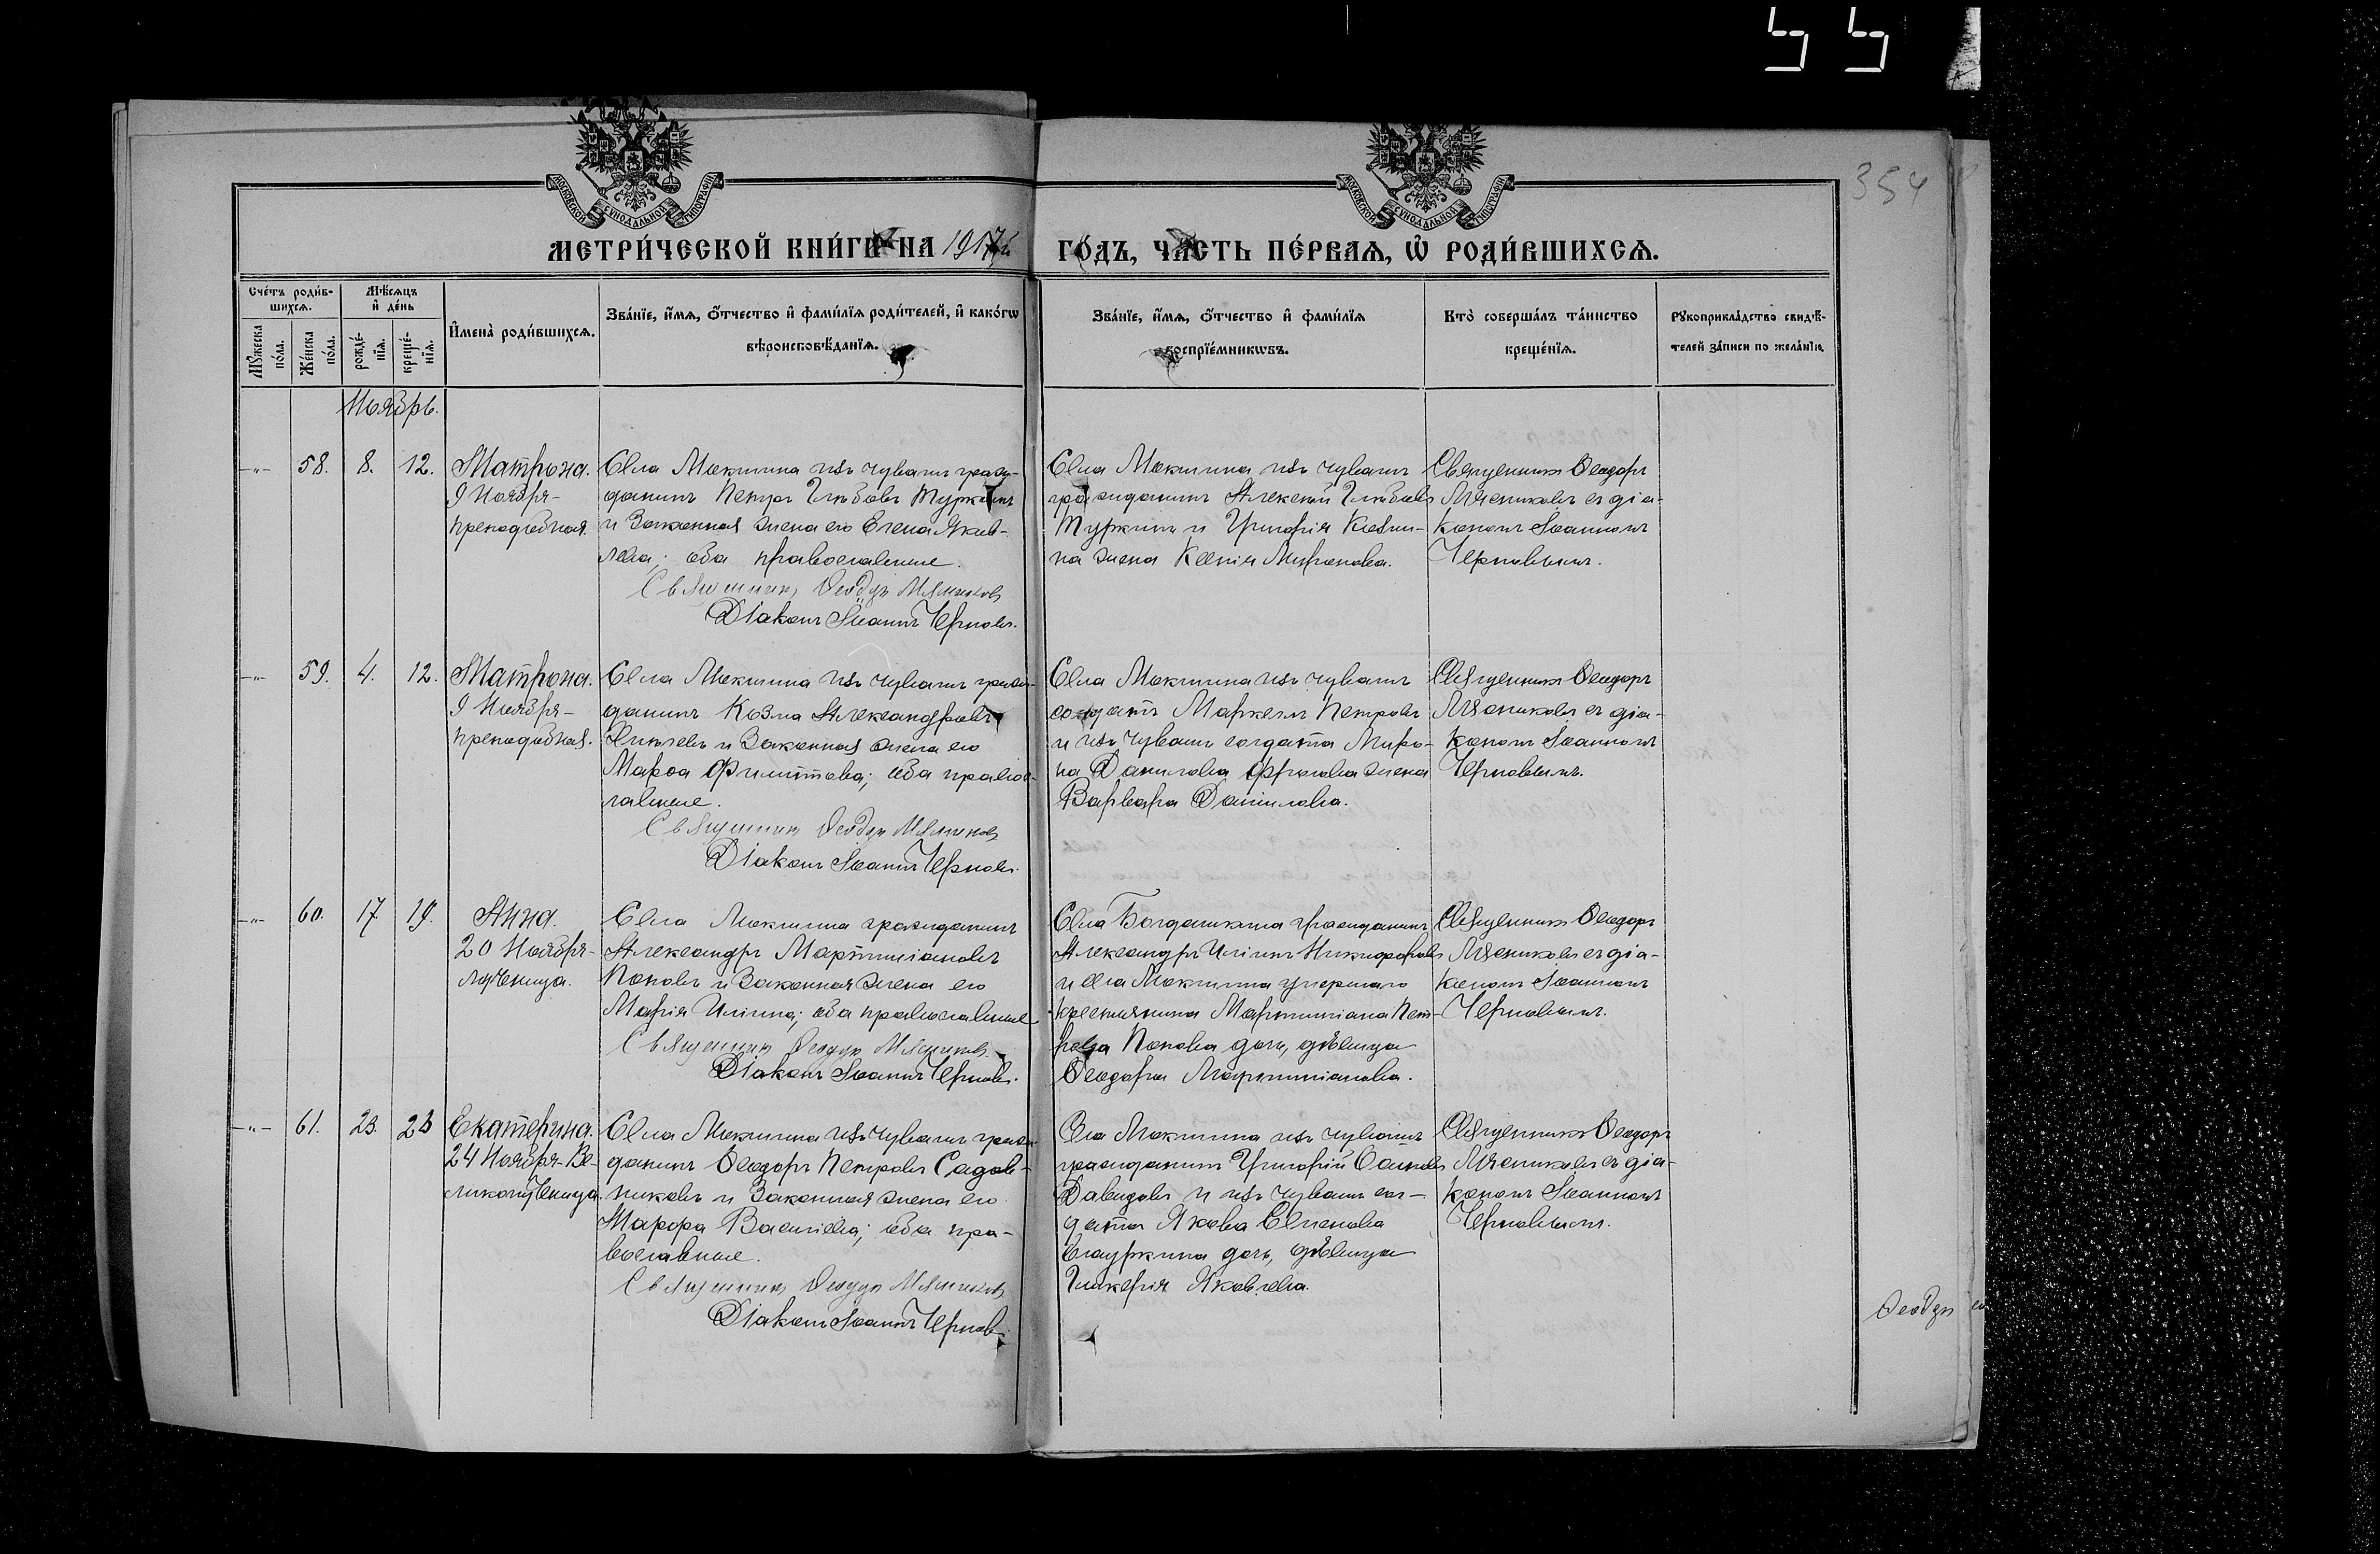 МОСКОВСКОЙ СѴНОДАЛЬНОЙ ТИПОГРАФІИ
МОСКОВСКОЙ СѴНОДАЛЬНОЙ ТИПОГРАФІИ
354
МЕТРИ́ЧЕСКОЙ КНИ́ГИ НА 1917й ГО́ДЪ, ЧА́СТЬ ПЕ́РВАѦ, Ѡ҆ РОДИ́ВШИХСѦ.
Сче́тъ роди́в-
шихсѧ.
Мѣ́сѧцъ
и҆ де́нь
Мꙋ́жеска
по́ла.
Же́нска
по́ла.
рожде́-
нїѧ.
креще́-
нїѧ.
И҆мена̀ роди́вшихсѧ.
Зва́нїе, и҆́мѧ, ѻ҆́тчество и҆ фами́лїѧ роди́телей, и҆ како́гѡ
вѣроисповѣ́данїѧ.
Зва́нїе, и҆́мѧ, ѻ҆́тчество и҆ фами́лїѧ
воспрїе́мникѡвъ.
Кто̀ соверша́лъ та́инство
креще́нїѧ.
Рꙋкоприкла́дство свидѣ́-
телей за́писи по жела́нїю.
Ноябрь.
-"- 58. 8. 12.
Матрона.
9 Ноября-
преподобная.
Села Мокшина изъ чувашъ граж-
данинъ Петръ Глѣбовъ Туркинъ
и законная жена его Елена Яков-
лева; оба православные.
Священникъ Ѳеодоръ Мясников
Діаконъ Іоаннъ Черновъ.
Села Мокшина изъ чувашъ
гражданинъ Алексѣй Глѣбовъ
Туркинъ и Григорія
на жена Ксенія Миронова.
Священникъ Ѳеодоръ
Мясниковъ съ діа-
кономъ Іоанномъ
Черновымъ.
-"- 59. 4. 12.
Матрона.
9 Ноября-
преподобная.
Села Мокшина изъ чувашъ граж-
данинъ Козма Александровъ
и законная жена его
Марѳа Филиппова; оба правос-
лавные.
Священникъ Ѳеодоръ Мясников
Діаконъ Іоаннъ Черновъ.
Села Мокшина изъ чувашъ
солдатъ Маркеллъ Петровъ
и изъ чувашъ солдата Миро-
на Данилова Фролова жена
Варвара Данилова.
Священникъ Ѳеодоръ
Мясниковъ съ діа-
кономъ Іоанномъ
Черновымъ.
-"- 60. 17 19.
Анна.
20 Ноября-
мученица.
Села Мокшина гражданинъ
Александръ Мартиніановъ
Поповъ и законная жена его
Марія Иліина; оба православные
Священникъ Ѳеодоръ Мясников
Діаконъ Іоаннъ Черновъ.
Села Богдашкина гражданинъ
Александръ Иліинъ Никифоровъ
и села Мокшина умершаго
крестьянина Мартиніана Пет-
рова Попова дочь, дѣвица
Ѳеодора Мартиніанова.
Священникъ Ѳеодоръ
Мясниковъ съ діа-
кономъ Іоанномъ
Черновымъ.
-"- 61. 23. 23
Екатерина.
24 Ноября-Ве-
ликомученица.
Села Мокшина изъ чувашъ граж-
данинъ Ѳеодоръ Петровъ Садов-
никовъ и законная жена его
Марфа Васильева; оба пра-
вославные.
Священникъ Ѳеодоръ Мясников
Діаконъ Іоаннъ Черновъ.
Села Мокшина изъ чувашъ
гражданинъ Григорій
Давидовъ и изъ чувашъ сол-
дата Якова Семенова
дочь, дѣвица
Гликерія Яковлева.
Священникъ Ѳеодоръ
Мясниковъ съ діа-
кономъ Іоанномъ
Черновымъ.
Ѳеодоръ